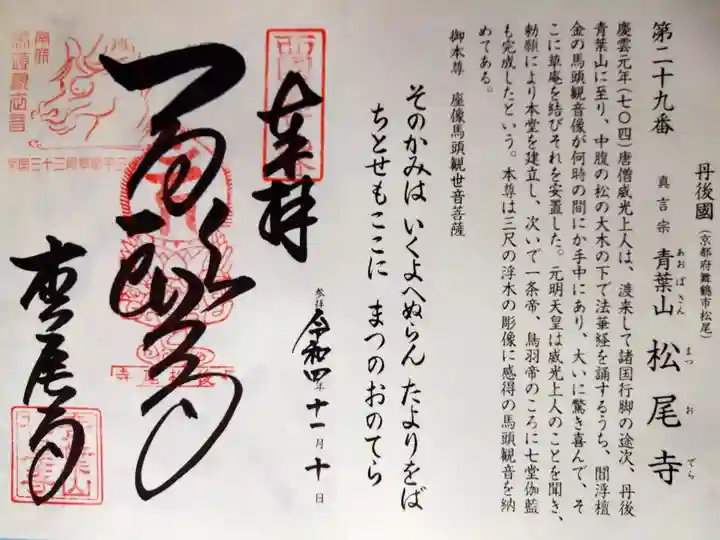 第二十九番
丹後國（京都府舞鶴市松尾）
真言宗 青葉山 松尾寺
あおばさん まつおでら
慶雲元年（七〇四）唐僧威光上人は、渡来して諸国行脚の途次、丹後
青葉山に至り、中腹の松の大木の下で法華経を誦するうち、閻浮檀
金の馬頭観音像が何時の間にか手中にあり、大いに驚き喜んで、そ
こに草庵を結びそれを安置した。元明天皇は威光上人のことを聞き、
勅願により本堂を建立し、次いで一条帝、鳥羽帝のころに七堂伽藍
も完成したという。本尊は三尺の浮木の彫像に感得の馬頭観音を納
めてある。
御本尊 座像馬頭観世音菩薩
そのかみは いくよへぬらん たよりをば
ちとせもここに まつのおのてら
奉拝
参拝 令和四年 十一月 十日
松尾寺